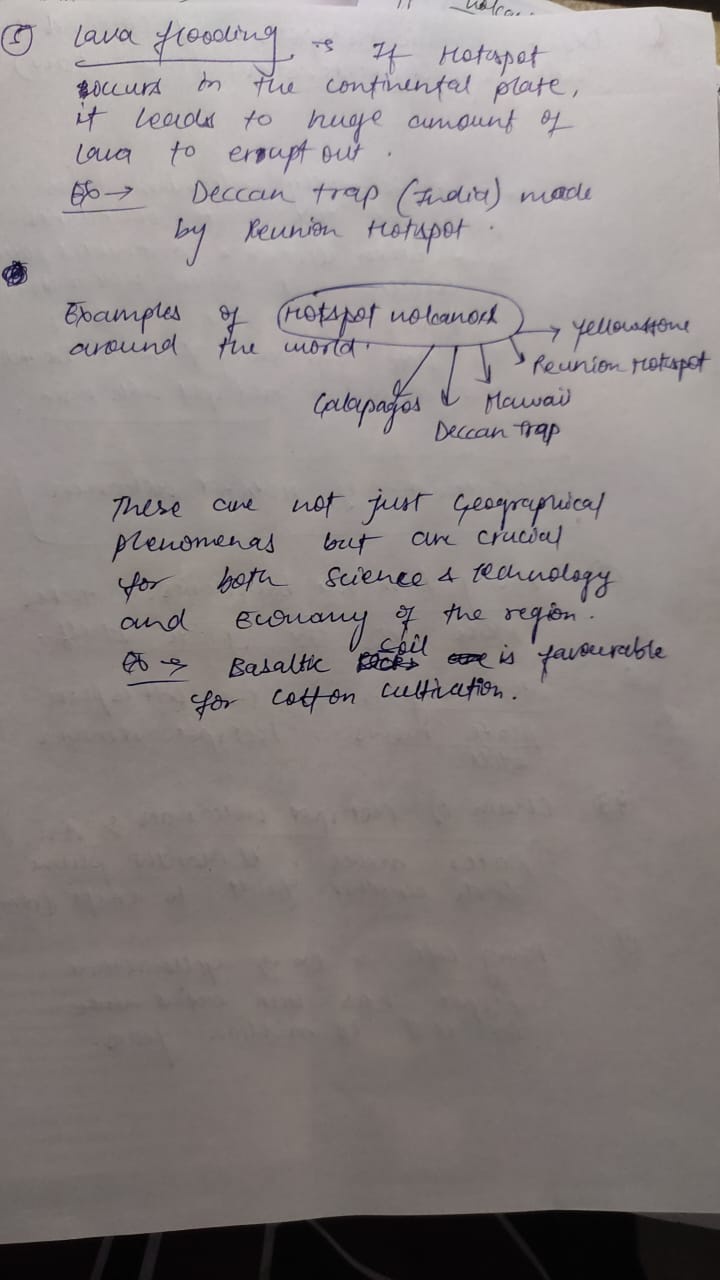 volca
⑤ Lava flooding → If Hotspot
occurs in the continental plate,
it leads to huge amount of
lava to errupt out.
Ex → Deccan trap (India) made
by Reunion Hotspot.
Examples of Hotspot volcanoes → Yellowstone
around the world. Reunion Hotspot
Galapagos Hawaii
Deccan trap
These are not just Geographical
phenomenas but are crucial
for both Science & technology
and Economy of the region.
Ex → Basaltic soil is favourable
for cotton cultivation.